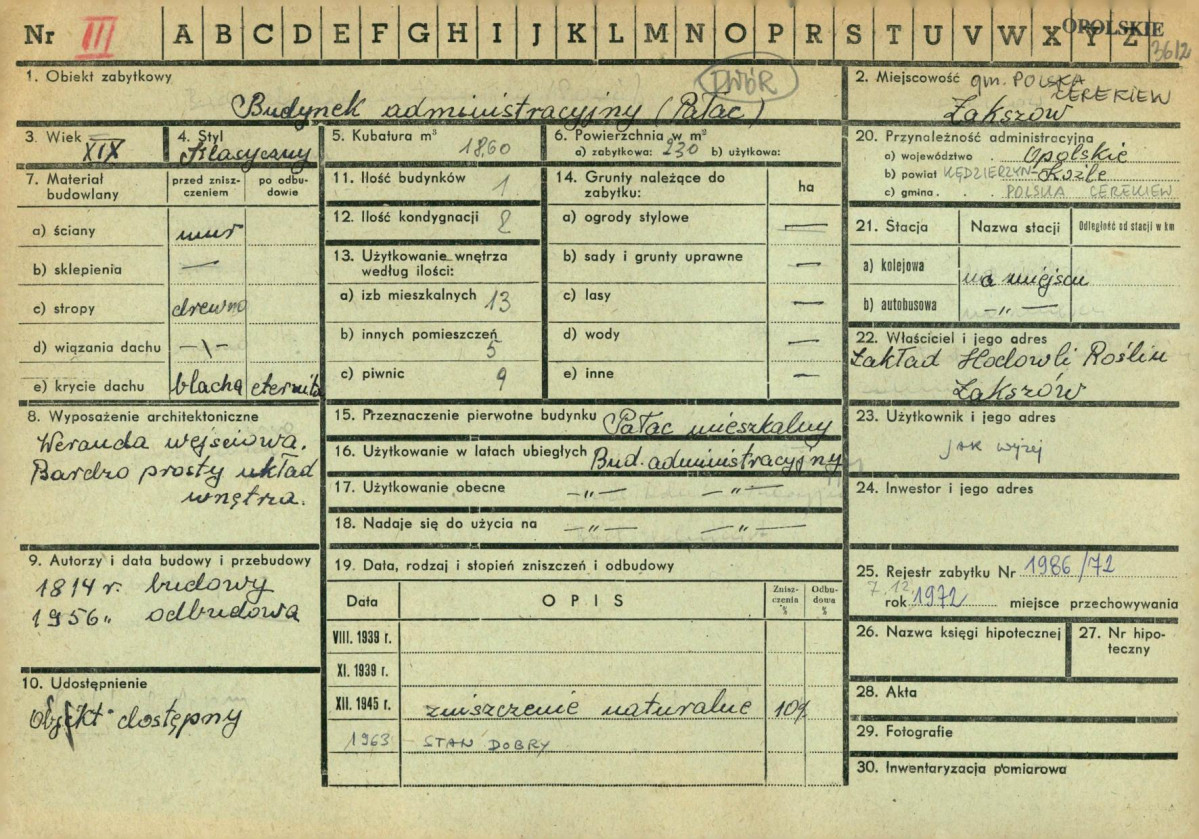 Nr III A B C D E F G H I J K L M N O P R S T U V W X Y Z OPOLSKIE
3612
1. Obiekt zabytkowy
DWÓR
Budynek administracyjny (Pałac)
2. Miejscowość gm. POLSKA
CEREKIEW
Zakszów
3. Wiek
XIX
4. Styl
Klasyczny
5. Kubatura m³
1860
6. Powierzchnia w m²
a) zabytkowa: 230 b) użytkowa:
20. Przynależność administracyjna
a) województwo . Opolskie
b) powiat KĘDZIERZYN-Koźle
c) gmina . . POLSKA CEREKIEW
7. Materiał budowlany
przed zniszczeniem
po odbudowie
a) ściany mur
b) sklepienia —
c) stropy drewno
d) wiązania dachu —\—
e) krycie dachu blacha eternit
11. Ilość budynków 1
12. Ilość kondygnacji 2
13. Użytkowanie wnętrza
według ilości:
a) izb mieszkalnych 13
b) innych pomieszczeń
5
c) piwnic 9
14. Grunty należące do
zabytku: ha
a) ogrody stylowe —
b) sady i grunty uprawne —
c) lasy —
d) wody —
e) inne —
21. Stacja Nazwa stacji Odległość od stacji w km
a) kolejowa na miejscu
b) autobusowa —„—
22. Właściciel i jego adres
Zakład Hodowli Roślin
Zakszów
8. Wyposażenie architektoniczne
Weranda wejściowa.
Bardzo prosty układ
wnętrza.
15. Przeznaczenie pierwotne budynku Pałac mieszkalny
16. Użytkowanie w latach ubiegłych Bud. administracyjny
17. Użytkowanie obecne —„— —„—
18. Nadaje się do użycia na —„— —„—
23. Użytkownik i jego adres
jak wyżej
24. Inwestor i jego adres
9. Autorzy i data budowy i przebudowy
1814 r. budowy
1956 „ odbudowa
10. Udostępnienie
Objekt dostępny
19. Data, rodzaj i stopień zniszczeń i odbudowy
Data OPIS Zniszczenia % Odbudowa %
VIII. 1939 r.
XI. 1939 r.
XII. 1945 r. zniszczenie naturalne 10%
1963 – STAN DOBRY
25. Rejestr zabytku Nr 1986/72
7.12.
rok 1972 miejsce przechowywania
26. Nazwa księgi hipotecznej
27. Nr hipoteczny
28. Akta
29. Fotografie
30. Inwentaryzacja pomiarowa